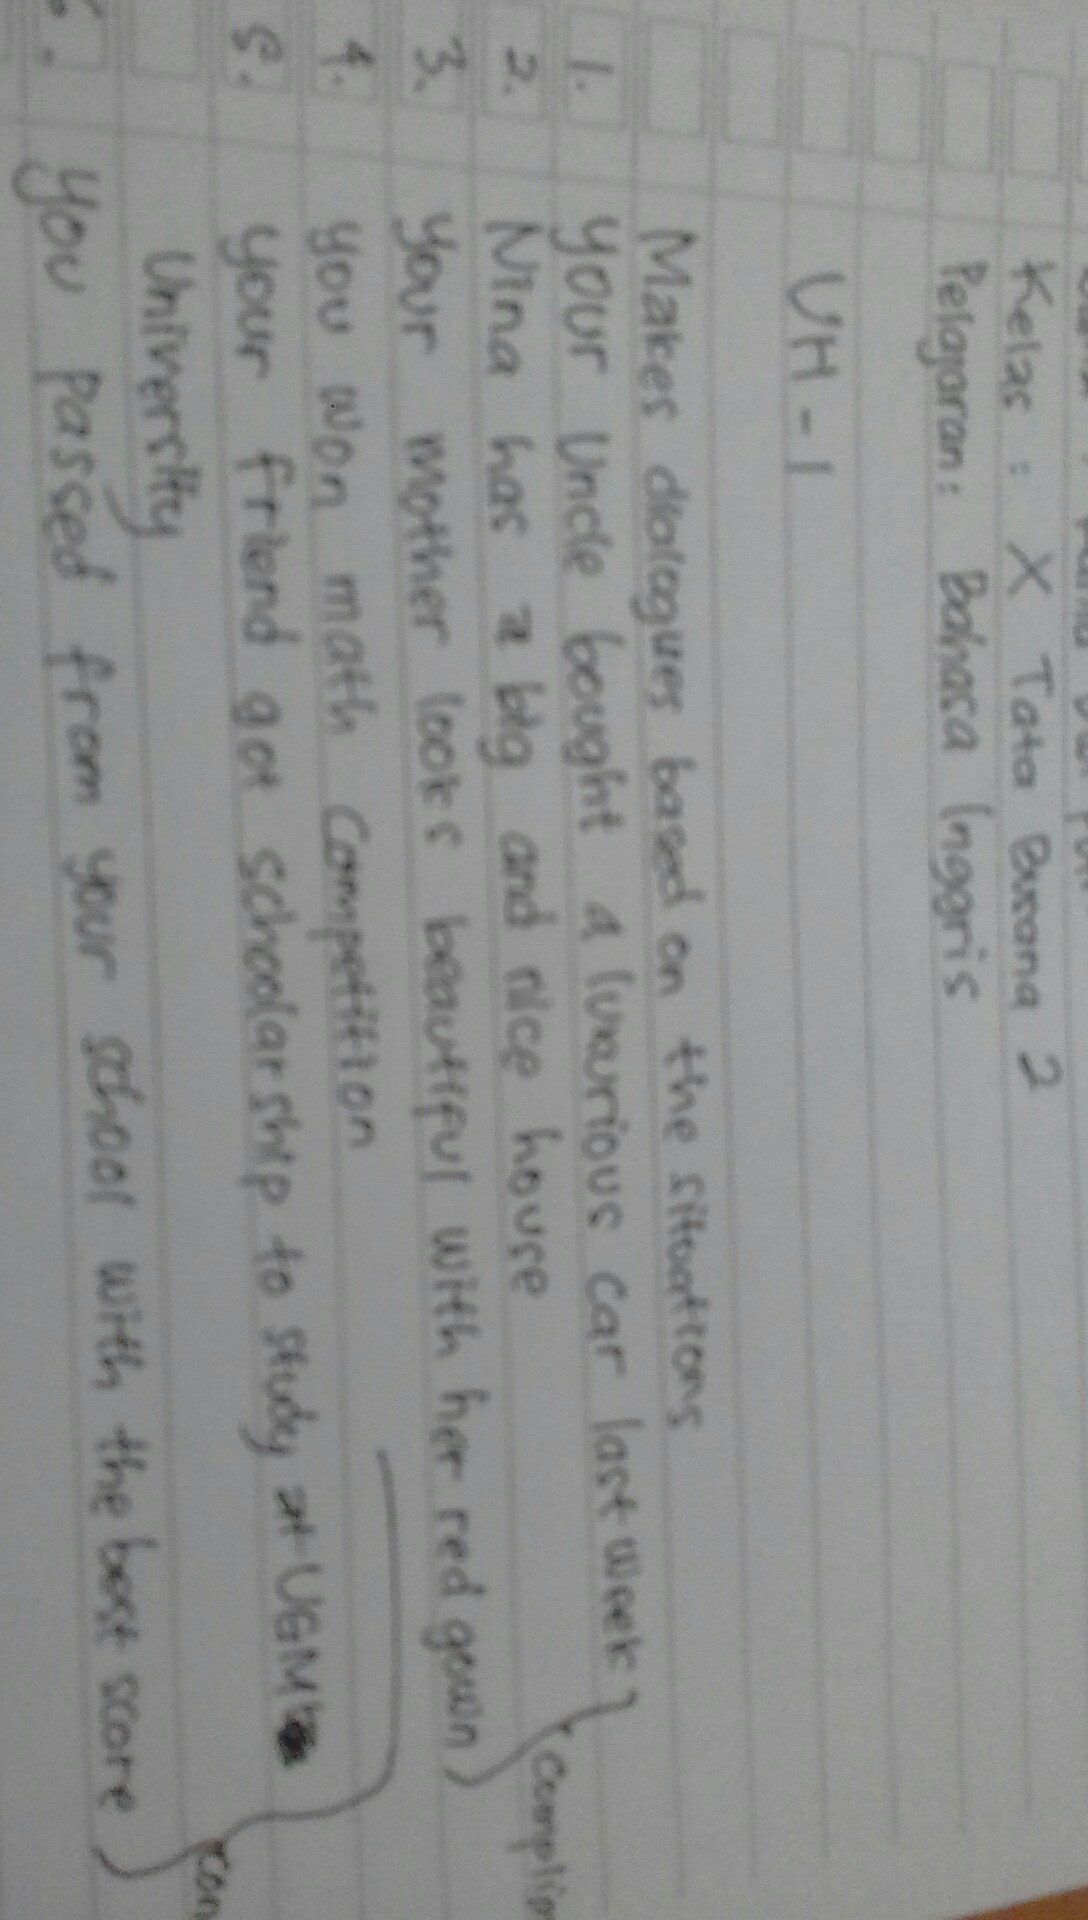 Kelas : X Tata Busana 2
Pelajaran : Bahasa Inggris
UH - 1
Makes dialogues based on the situations
1. Your Uncle bought a luxurious car last week
2. Nina has a big and nice house
3. Your mother looks beautiful with her red gown
complim
4. You won math Competition
5. Your friend got schoolarship to study at UGM
University
6. You passed from your school with the best score
con